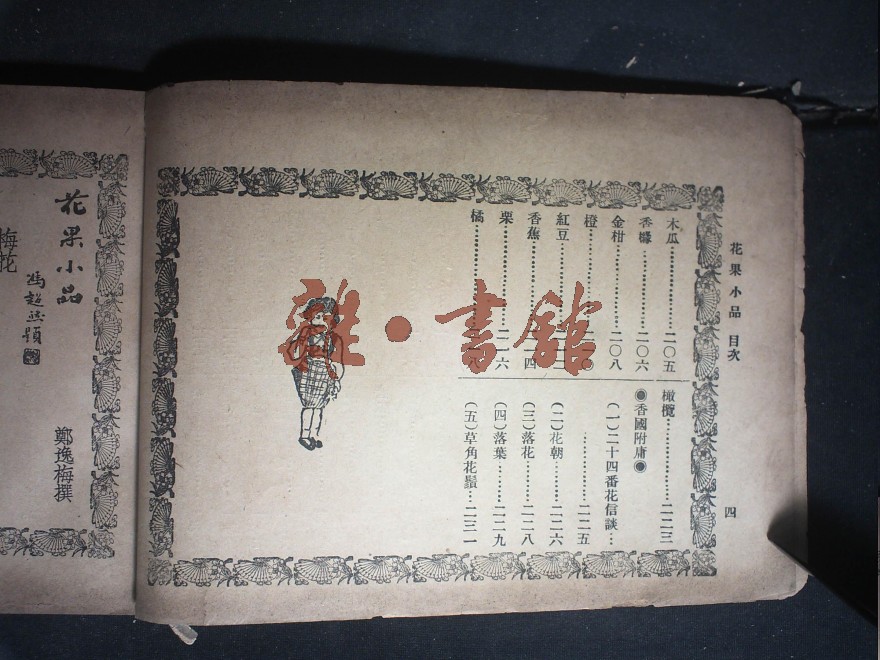 花果小品 目次
四
木瓜…………二〇五
香櫞…………二〇六
金柑…………二〇八
橙…………〇
紅豆…………二
香蕉…………四
栗…………二一六
橘…………
橄欖…………二二三
◉香國附庸◉
(一)二十四番花信談…
…………二二五
(二)花朝…………二二六
(三)落花…………二二八
(四)落葉…………二二九
(五)草角花鬚…二三一
花果小品
馮超然題
鄭逸梅撰
梅花
雜·書館